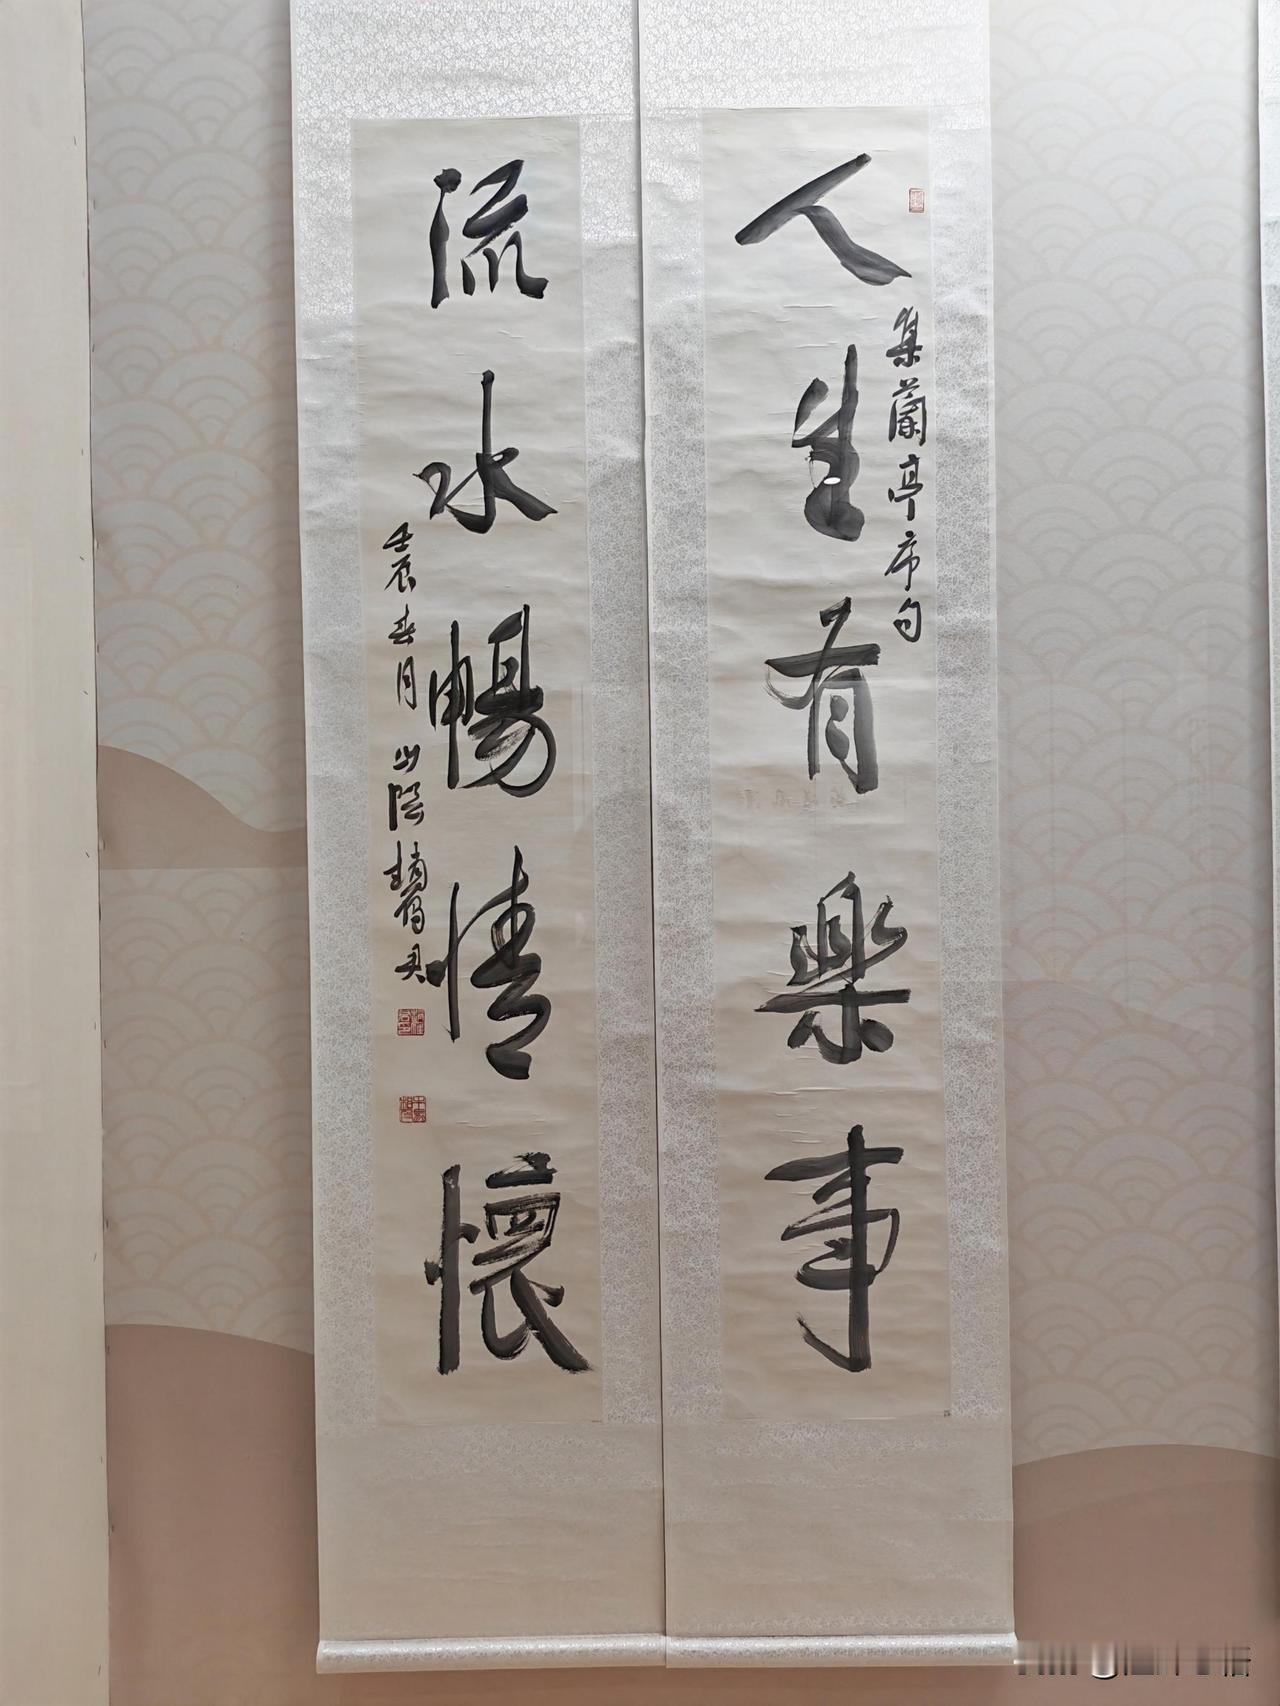 人生有樂事
集蘭亭序句
流水暢情懷
壬辰春月山陰趙雁君